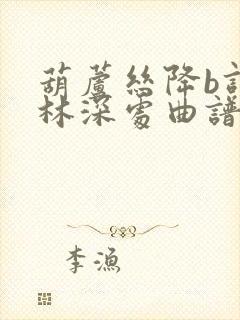 葫蘆絲降b
林深處曲譜
李漁